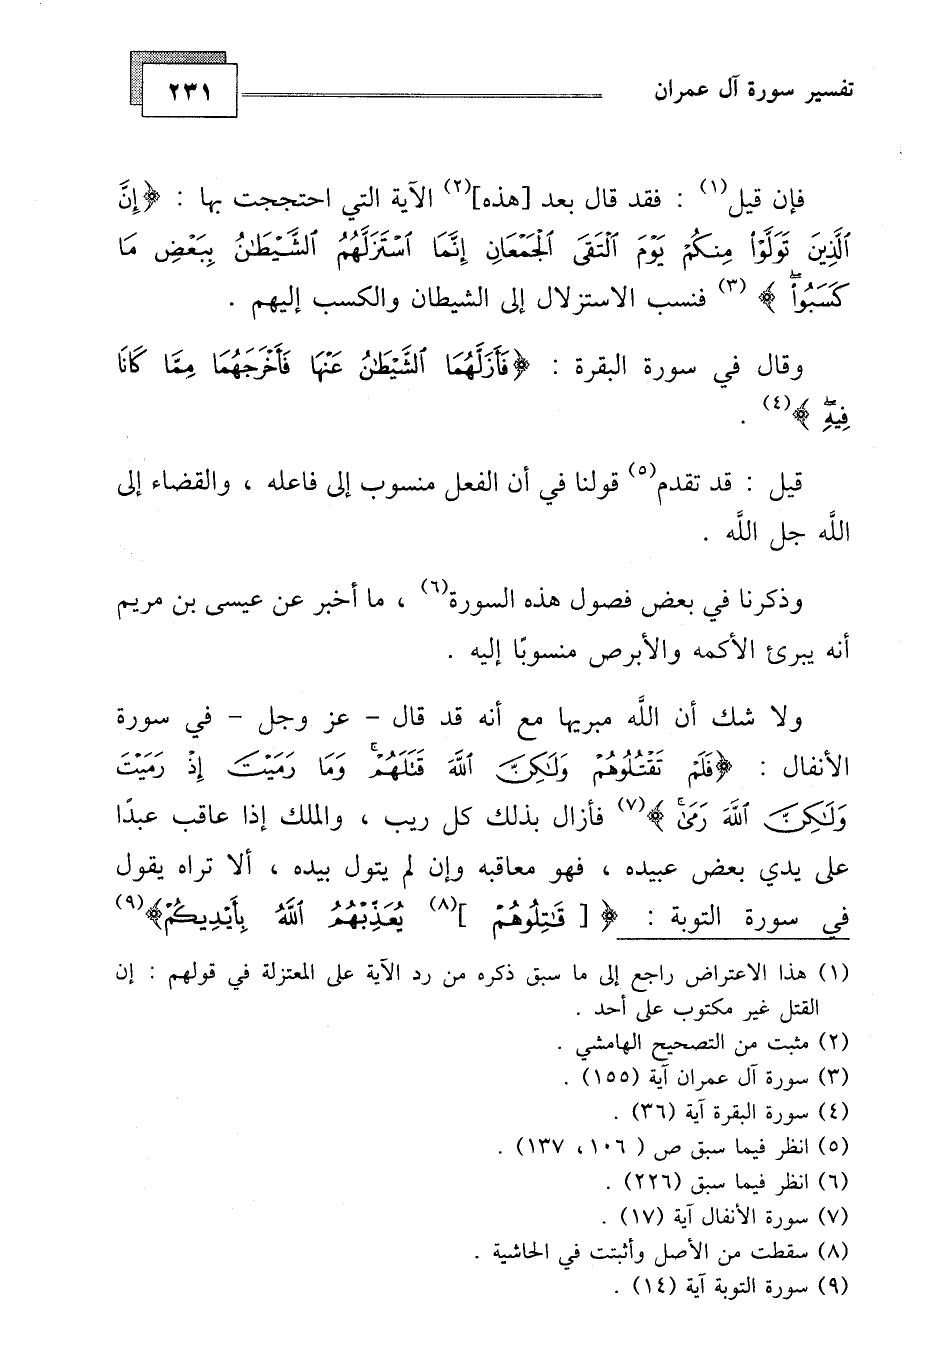 تفسير سورة آل عمران
٢٣١
فإن قيل(١) : فقد قال بعد [هذه](٢) الآية التي احتججت بها : ﴿إِنَّ
ٱلَّذِينَ تَوَلَّوۡاْ مِنكُمۡ يَوۡمَ ٱلۡتَقَى ٱلۡجَمۡعَانِ إِنَّمَا ٱسۡتَزَلَّهُمُ ٱلشَّيۡطَٰنُ بِبَعۡضِ مَا
كَسَبُواْۖ ﴾ (٣) فنسب الاستزلال إلى الشيطان والكسب إليهم .
وقال في سورة البقرة : ﴿فَأَزَلَّهُمَا ٱلشَّيۡطَٰنُ عَنۡهَا فَأَخۡرَجَهُمَا مِمَّا كَانَا
فِيهِۖ ﴾(٤) .
قيل : قد تقدم(٥) قولنا في أن الفعل منسوب إلى فاعله ، والقضاء إلى
اللَّه جل اللَّه .
وذكرنا في بعض فصول هذه السورة(٦) ، ما أخبر عن عيسى بن مريم
أنه يبرئ الأكمه والأبرص منسوبًا إليه .
ولا شك أن اللَّه مبريها مع أنه قد قال – عز وجل – في سورة
الأنفال : ﴿فَلَمۡ تَقۡتُلُوهُمۡ وَلَٰكِنَّ ٱللَّهَ قَتَلَهُمۡۚ وَمَا رَمَيۡتَ إِذۡ رَمَيۡتَ
وَلَٰكِنَّ ٱللَّهَ رَمَىٰۚ ﴾(٧) فأزال بذلك كل ريب ، والملك إذا عاقب عبدًا
على يدي بعض عبيده ، فهو معاقبه وإن لم يتول بيده ، ألا تراه يقول
في سورة التوبة : ﴿ [ قَٰتِلُوهُمۡ ](٨) يُعَذِّبۡهُمُ ٱللَّهُ بِأَيۡدِيكُمۡ﴾(٩)
(١) هذا الاعتراض راجع إلى ما سبق ذكره من رد الآية على المعتزلة في قولهم : إن
القتل غير مكتوب على أحد .
(٢) مثبت من التصحيح الهامشي .
(٣) سورة آل عمران آية (١٥٥) .
(٤) سورة البقرة آية (٣٦) .
(٥) انظر فيما سبق ص ( ١٠٦، ١٣٧) .
(٦) انظر فيما سبق (٢٢٦) .
(٧) سورة الأنفال آية (١٧) .
(٨) سقطت من الأصل وأثبتت في الحاشية .
(٩) سورة التوبة آية (١٤) .